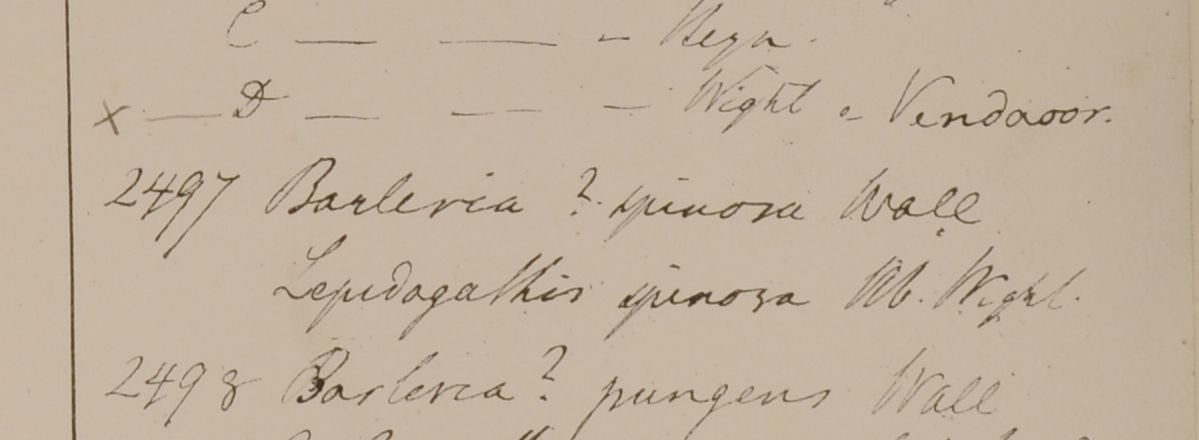 C — — – Heyn.
x — D — — – Wight – Vendaoor.
2497 Barleria ? spinosa Wall
Lepidagathis spinosa Hb. Wight.
2498 Barleria ? pungens Wall